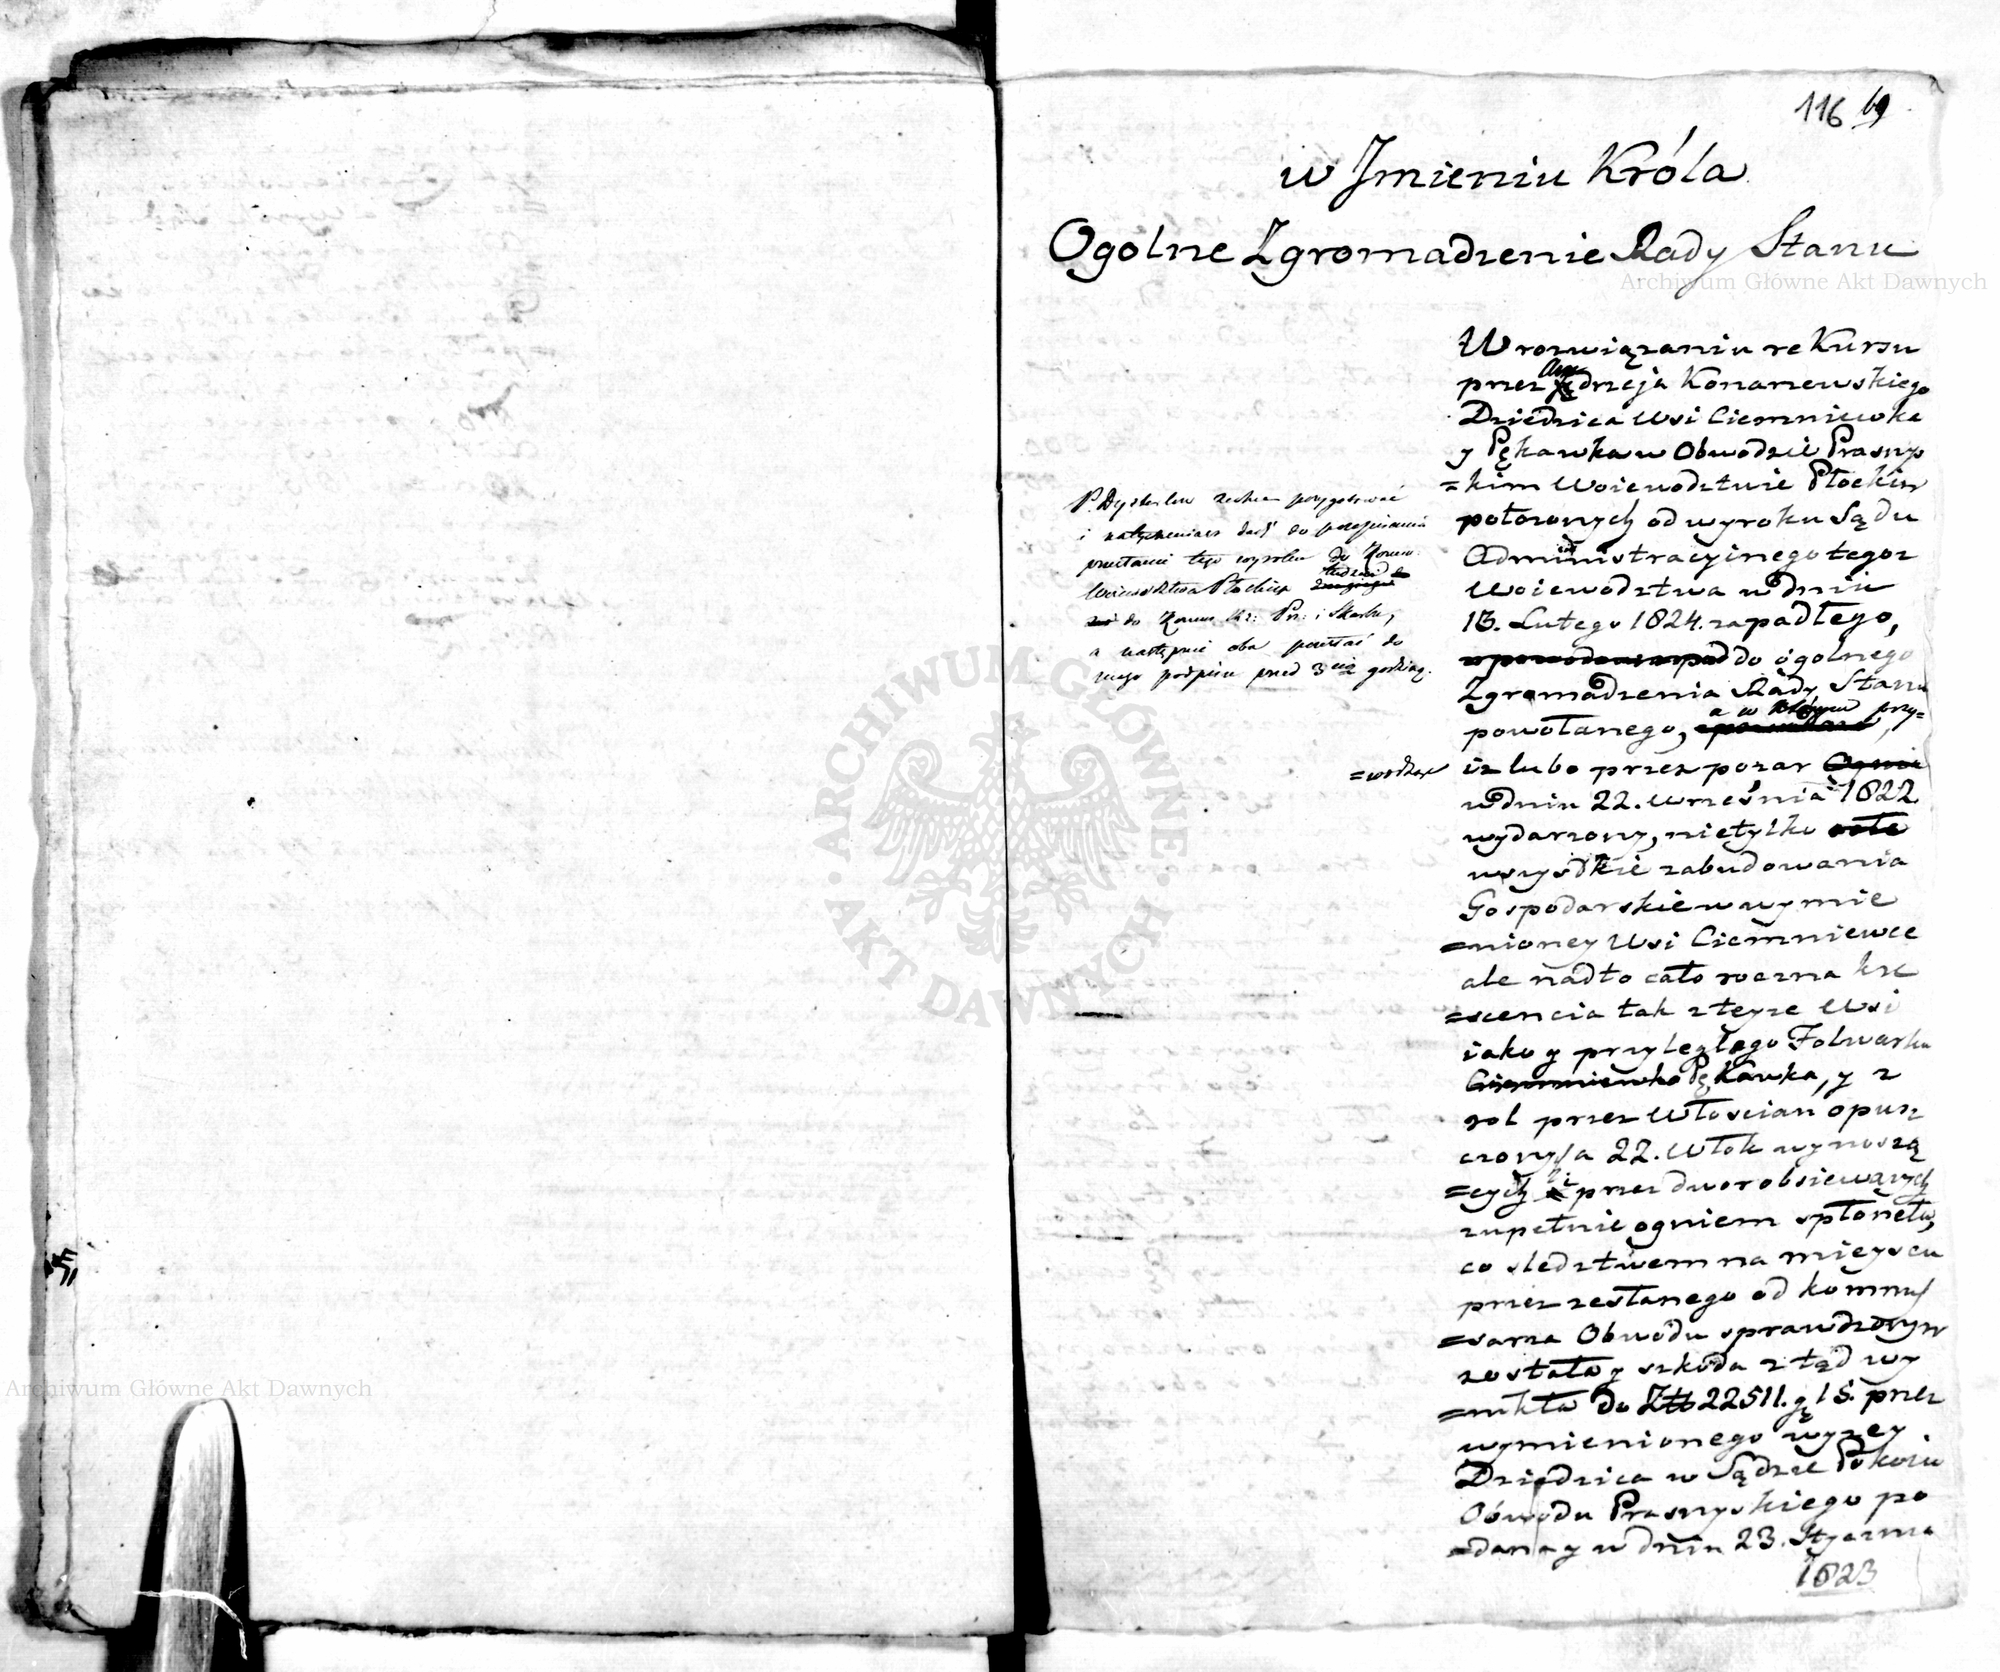 116 69
w Jmieniu Króla
Ogolne Zgromadzenie Rady Stanu
Archiwum Główne Akt Dawnych
W rozwiązaniu rekursu
przez Andrzeja Konarzewskiego
Dziedzica Wsi Ciemniewka
y Pękawka w Obwodzie Prasnys
=kim Woiewodztwie Płockim
położonych od wyroku Sądu
Administracyinego tegoż
Woiewodztwa w dniu
13. Lutego 1824. zapadłego,
do ogolnego
Zgromadzenia Rady Stanu
powołanego, a w którym przy=
=wodzi
iż lubo przez pożar
w dniu 22. Września 1822
wydarzony, nietylko
wszystkie zabudowania
Gospodarskie w wymie
=nioney Wsi Ciemniewce
ale nadto cało roczna kre
=scencia tak z teyże Wsi
iako y przyległego Folwarku
Pękawka, y z
rol przez Włoscian opusz
czonych 22. Włok wynoszą
=cych przez dwor obsiewanych
zupełnie ogniem spłoneła,
co sledztwem na mieyscu
przez zesłanego od kommis
=sarza Obwodu sprawdzonym
zostało y szkoda ztąd wy
=nikła do Złł 22511. g 15. przez
wymienionego wyżey
Dziedzica w Sądzie Pokoiu
Obwodu Prasnyskiego po
=dana y w dniu 23. Stycznia
1823
P. Dyrektor zechce przygotować
i natychmiast dać do przepisania
przesłanie tego wyroku do Kommi:
Województwa Płockiego tudzież
do Komm Rz: Prz: i Skarbu,
a następnie oba przesłać do
mego podpisu przed 3cią godziną.
ARCHIWUM GŁÓWNE · AKT DAWNYCH ·
Archiwum Główne Akt Dawnych